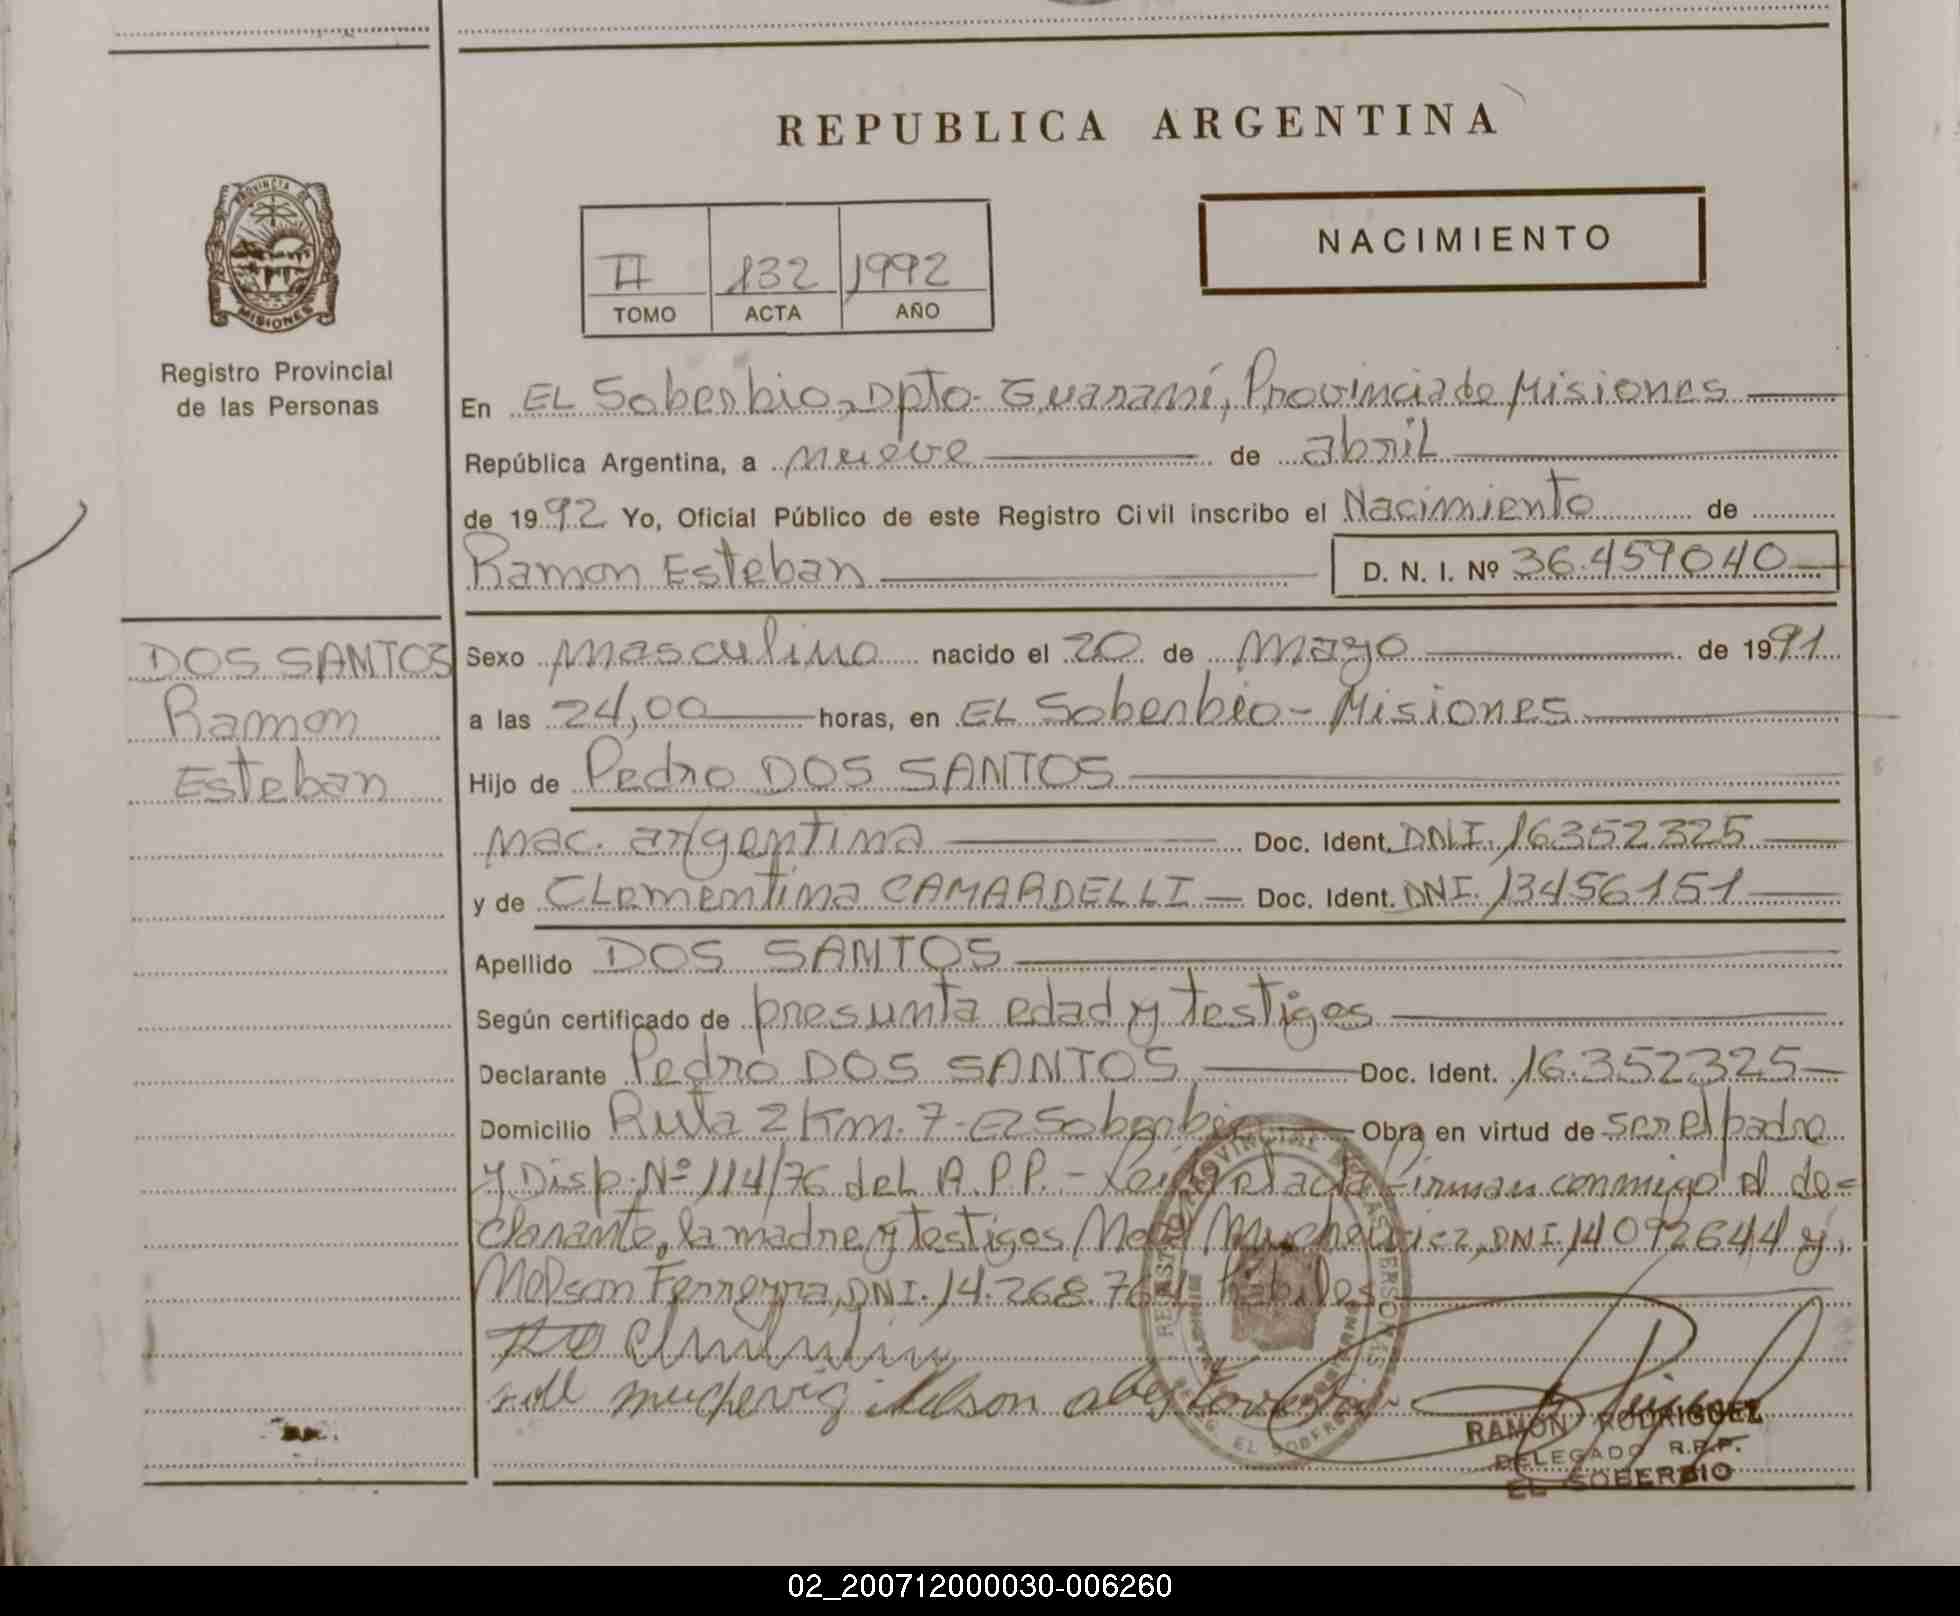 REPUBLICA ARGENTINA
PROVINCIA DE
MISIONES
Registro Provincial
de las Personas
II 132 1992
TOMO ACTA AÑO
NACIMIENTO
En EL Soberbio, Dpto. Guaraní, Provincia de Misiones
República Argentina, a nueve de abril
de 1992 Yo, Oficial Público de este Registro Civil inscribo el Nacimiento de
Ramon Esteban D. N. I. Nº 36.459040
DOS SANTOS
Ramon
Esteban
Sexo masculino nacido el 20 de Mayo de 1991
a las 24,00 horas, en EL Soberbio - Misiones
Hijo de Pedro DOS SANTOS
nac. argentina Doc. Ident. DNI. 16352325
y de Clementina CAMARDELLI Doc. Ident. DNI. 13456151
Apellido DOS SANTOS
Según certificado de presunta edad y testigos
Declarante Pedro DOS SANTOS Doc. Ident. 16.352325
Domicilio Ruta 2 Km. 7 - El Soberbio Obra en virtud de ser el padre
y Disp. Nº 114/76 del R.P.P. - Leída el acta firman conmigo el de=
clarante, la madre y testigos DNI. 14092644 y
Nelson Ferreyra, DNI. 14.268.764 hábiles
Nelson
RAMON RODRIGUEZ
DELEGADO R.P.P.
EL SOBERBIO
02_200712000030-006260